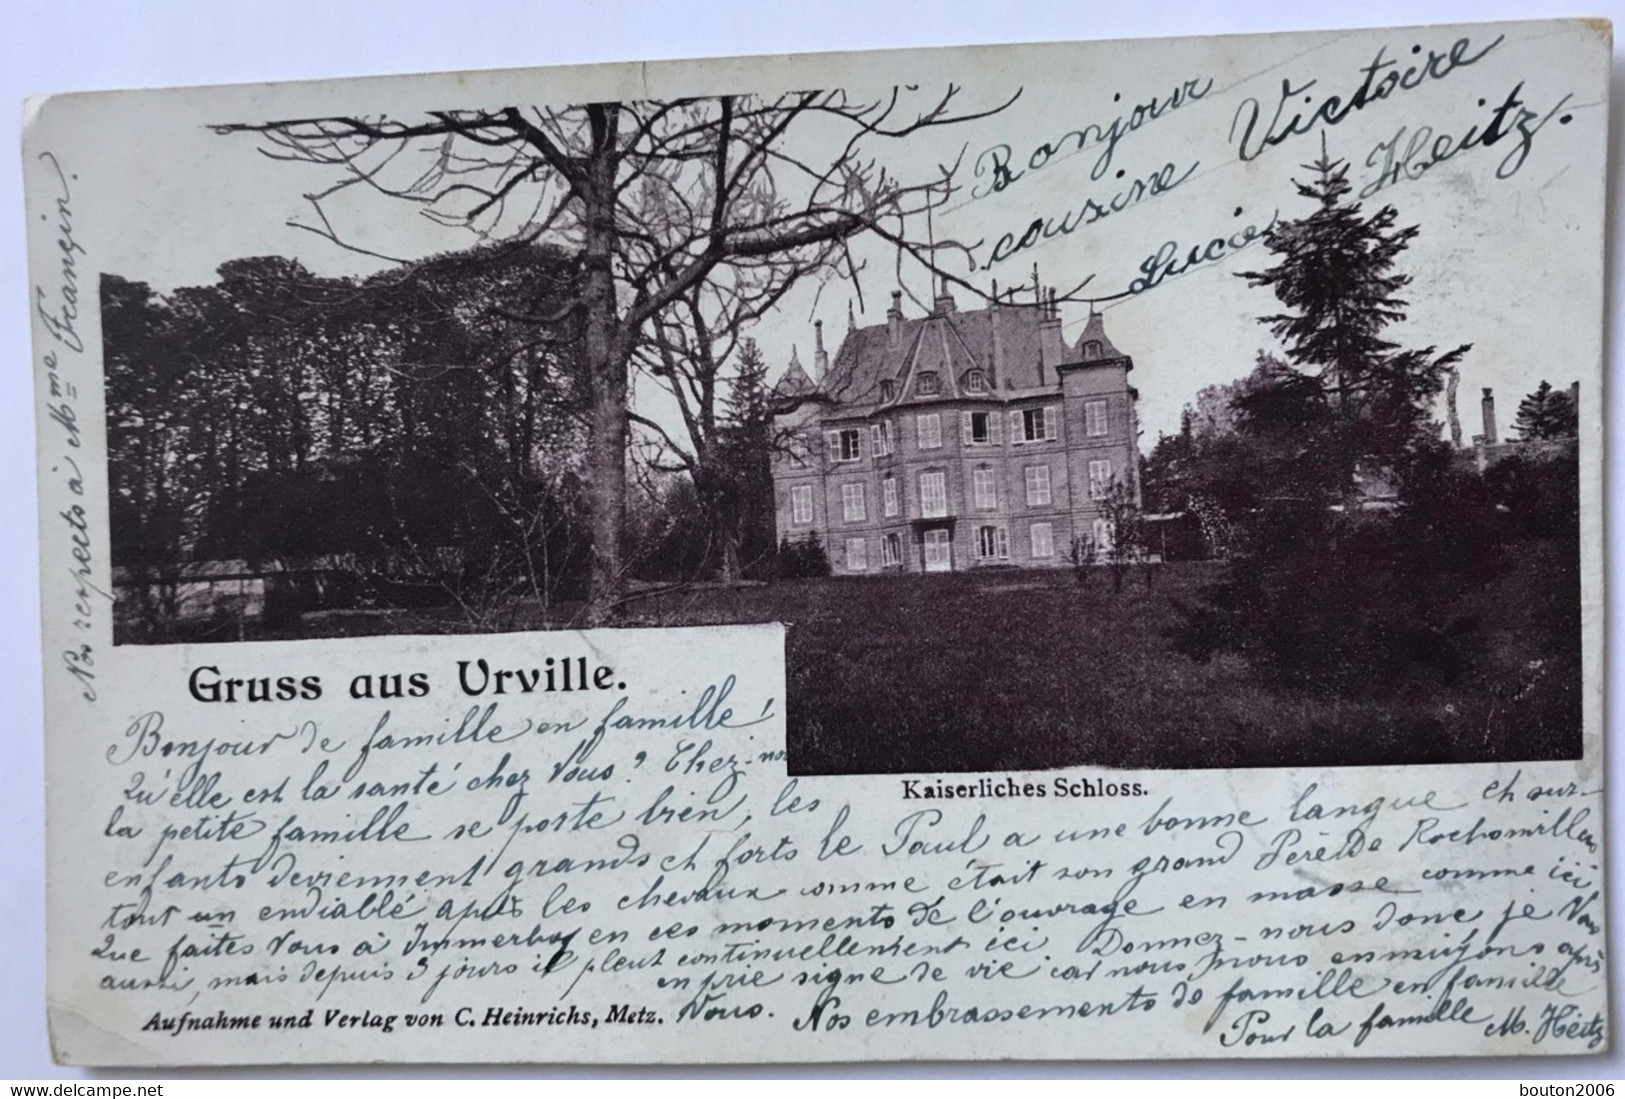 Bonjour
cousine Victoire
Lucie Heitz.
Nos respects à Mme Françin.
Gruss aus Urville.
Kaiserliches Schloss.
Bonjour de famille en famille!
Qu'elle est la santé chez Vous? Chez-nous
la petite famille se porte bien, les
enfants deviennent grands et forts le Paul a une bonne langue et sur-
tout un endiablé après les chevaux comme était son grand Père de
Que faites Vous à Immerhof en ces moments de l'ouvrage en masse comme ici
aussi, mais depuis 3 jours il pleut continuellement ici. Donnez-nous donc je Vous
en prie signe de vie car nous nous ennuyons après
Vous. Nos embrassements de famille en famille
Pour la famille M. Heitz
Aufnahme und Verlag von C. Heinrichs, Metz.
bouton2006